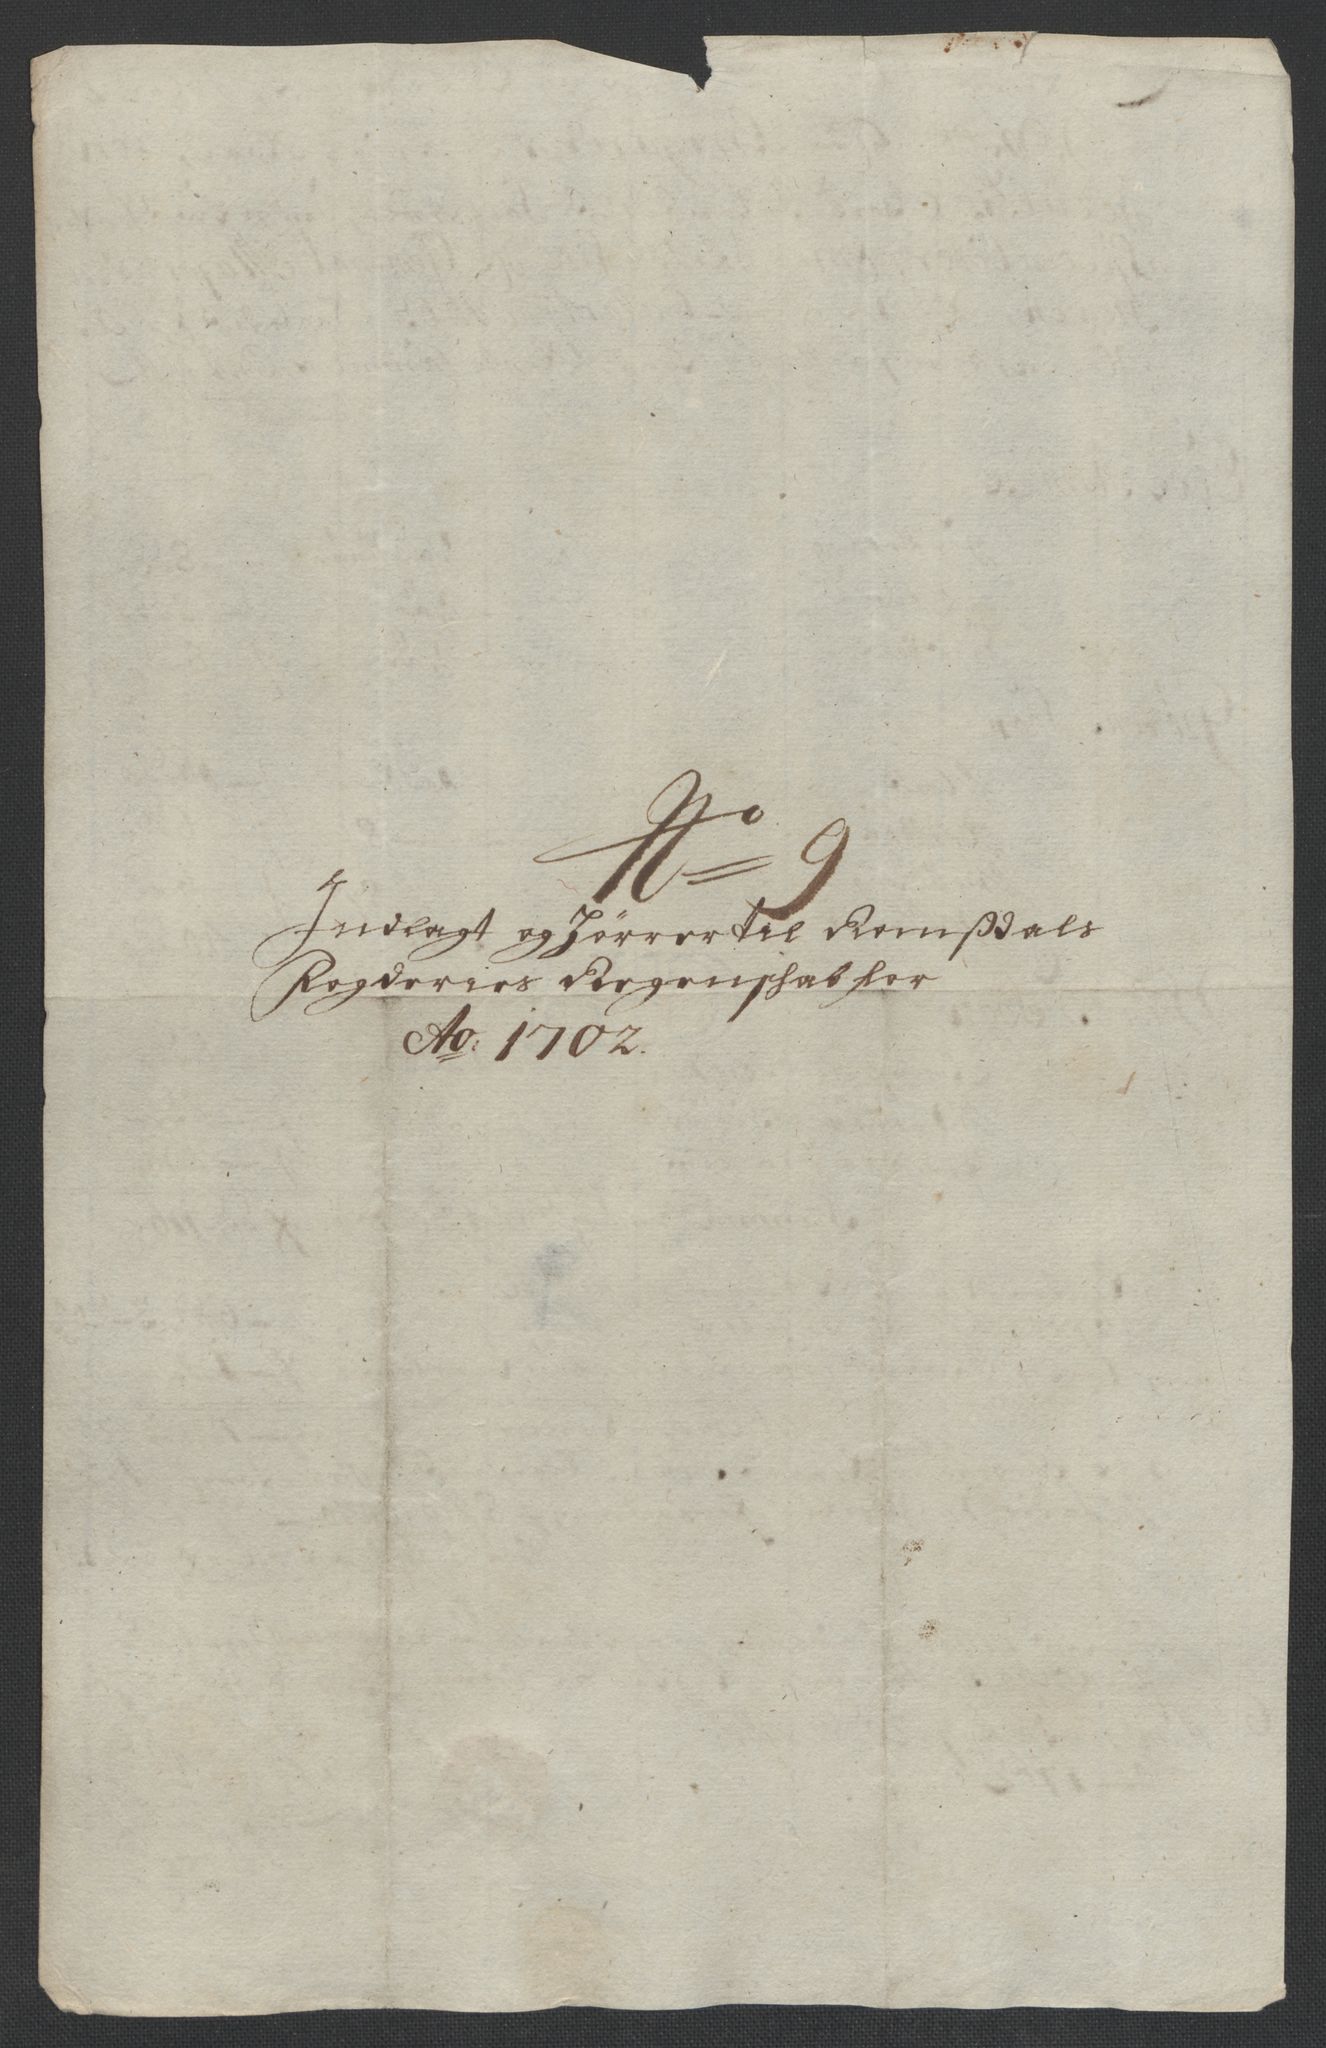 No 9
Indlagt og Hörrer til Romßdals
Fogderies Regenschab for
Ao: 1702.